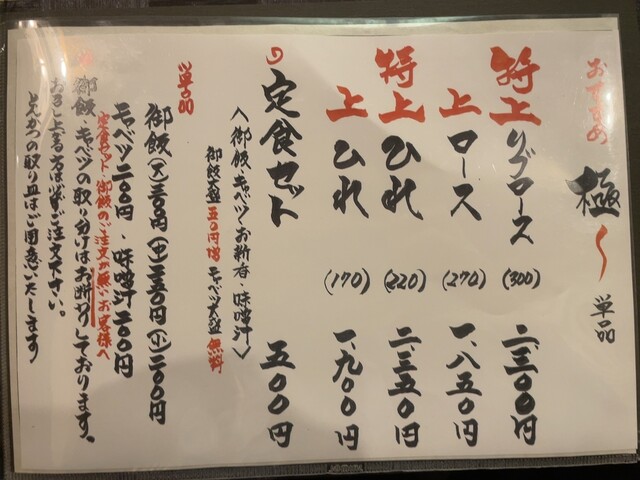 おすすめ 極〜 単品
特上 リブロース (300) 二、三〇〇円
上 ロース (270) 一、八五〇円
特上 ひれ (220) 二、三五〇円
上 ひれ (170) 一、九〇〇円
定食セット 五〇〇円
〈御飯・キャベツ・お新香・味噌汁〉
御飯大盛 五〇円増 キャベツ大盛 無料
単品
御飯(大)三〇〇円(中)二五〇円(小)二〇〇円
キャベツ二〇〇円・味噌汁二〇〇円
定食セット・御飯のご注文が無いお客様へ
御飯、キャベツの取り分けはお断りしております。
お召し上る方は必ずご注文下さい。
とんかつの取り皿はご用意いたします